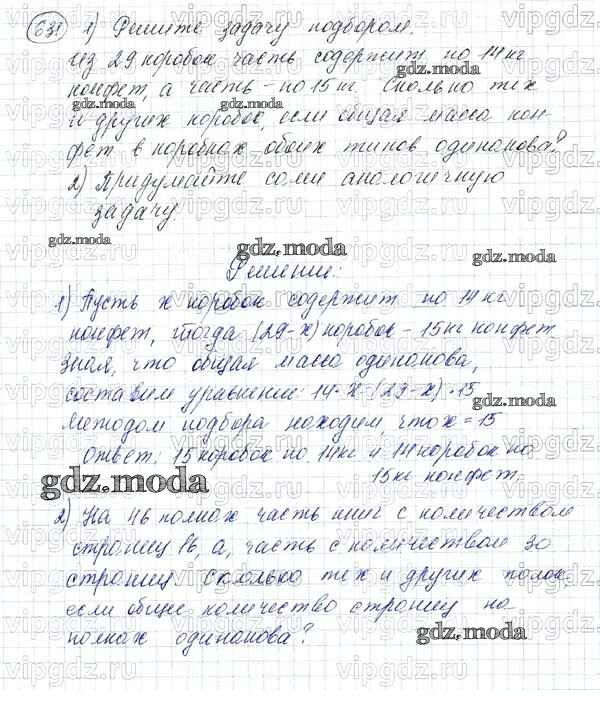 631 1) Решите задачу подбором.
Из 29 коробок часть содержит по 14 кг
конфет, а часть - по 15 кг. Сколько тех
и других коробок, если общая масса кон-
фет в коробках обоих типов одинакова?
2) Придумайте сами аналогичную
задачу.
gdz.moda
Решение:
1) Пусть x коробок содержит по 14 кг
конфет, тогда (29-x) коробок - 15 кг конфет.
Зная, что общая масса одинакова,
составим уравнение: 14·x=(29-x)·15
Методом подбора находим, что x=15
Ответ: 15 коробок по 14 кг и 14 коробок по
15 кг конфет.
gdz.moda
2) На 46 полках часть книг с количеством
страниц 16, а, часть с количеством 30
страниц сколько тех и других полок,
если общее количество страниц на
полках одинакова?
gdz.moda